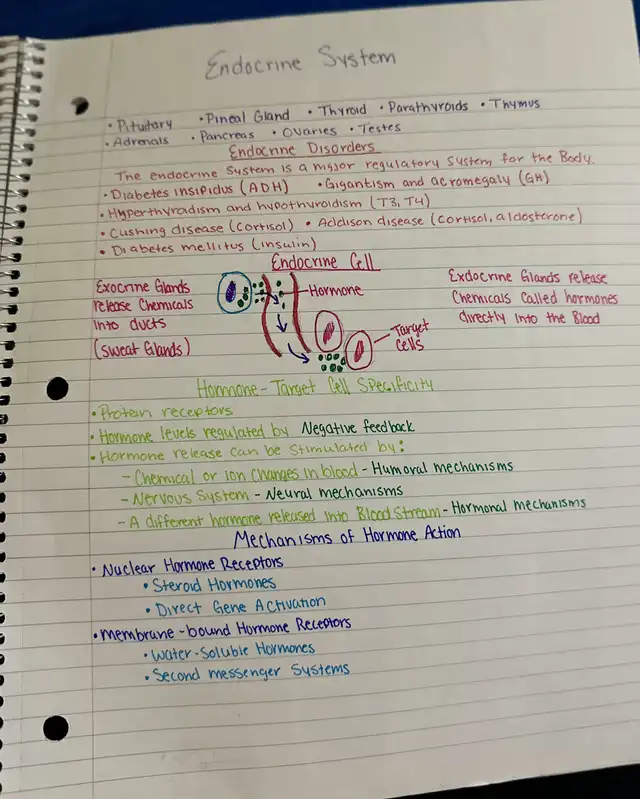 Endocrine System
• Pituitary • Pineal Gland • Thyroid • Parathyroids • Thymus
• Adrenals • Pancreas • Ovaries • Testes
Endocrine Disorders
The endocrine system is a major regulatory system for the Body.
• Diabetes insipidus (ADH) • Gigantism and acromegaly (GH)
• Hyperthyroidism and hypothyroidism (T3, T4)
• Cushing disease (cortisol) • Addison disease (cortisol, aldosterone)
• Diabetes mellitus (insulin)
Endocrine Cell
Exocrine Glands
release Chemicals
into ducts
(sweat Glands)
Hormone
Target
Cells
Exdocrine Glands release
Chemicals called hormones
directly into the Blood
Hormone-Target Cell Specificity
• Protein receptors
• Hormone levels regulated by Negative feedback
• Hormone release can be stimulated by:
- Chemical or ion changes in blood - Humoral mechanisms
- Nervous System - Neural mechanisms
- A different hormone released into Blood Stream - Hormonal mechanisms
Mechanisms of Hormone Action
• Nuclear Hormone Receptors
• Steroid Hormones
• Direct Gene Activation
• Membrane-bound Hormone Receptors
• Water-Soluble Hormones
• Second messenger Systems